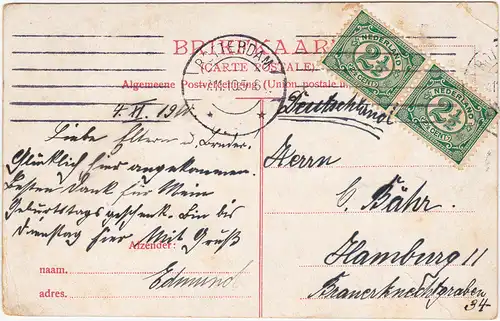 BRIEFKAART
(CARTE POSTALE)
Algemeene Postvereeniging (Union postale
ROTTERDAM
NEDERLAND
2½
CENT
NEDERLAND
2½
CENT
Deutschland
Liebe Eltern u. Bruder.
Glücklich hier angekommen.
Besten Dank für Mein
Geburtstagsgeschenk. Bin bis
Dienstag hier Mit Gruß
Edmund
Afzender:
naam.
adres.
Herrn
C. Bähr.
Hamburg 11
Brauerknechtgraben
34